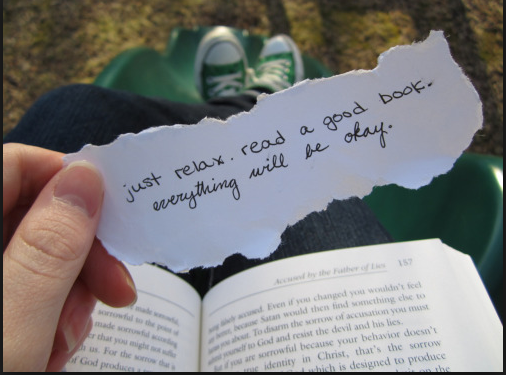 just relax. read a good book.
everything will be okay.
Accused by the Father of Lies 157
being falsely accused. Even if you changed you wouldn't feel
better, because Satan would then find something else to
you about. To disarm the sorrow of accusation you must
yourself to God and resist the devil and his lies.
But if you are sorrowful because your behavior doesn't
true identity in Christ, that's the sorrow
which is designed to produce
on the
made sorrowful,
sorrowful to the point of
made sorrowful according
that you might not suffer
us. For the sorrow that is
of God produces a